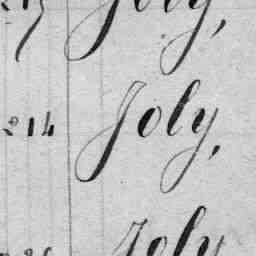 Joly,
214 Joly,
Joly